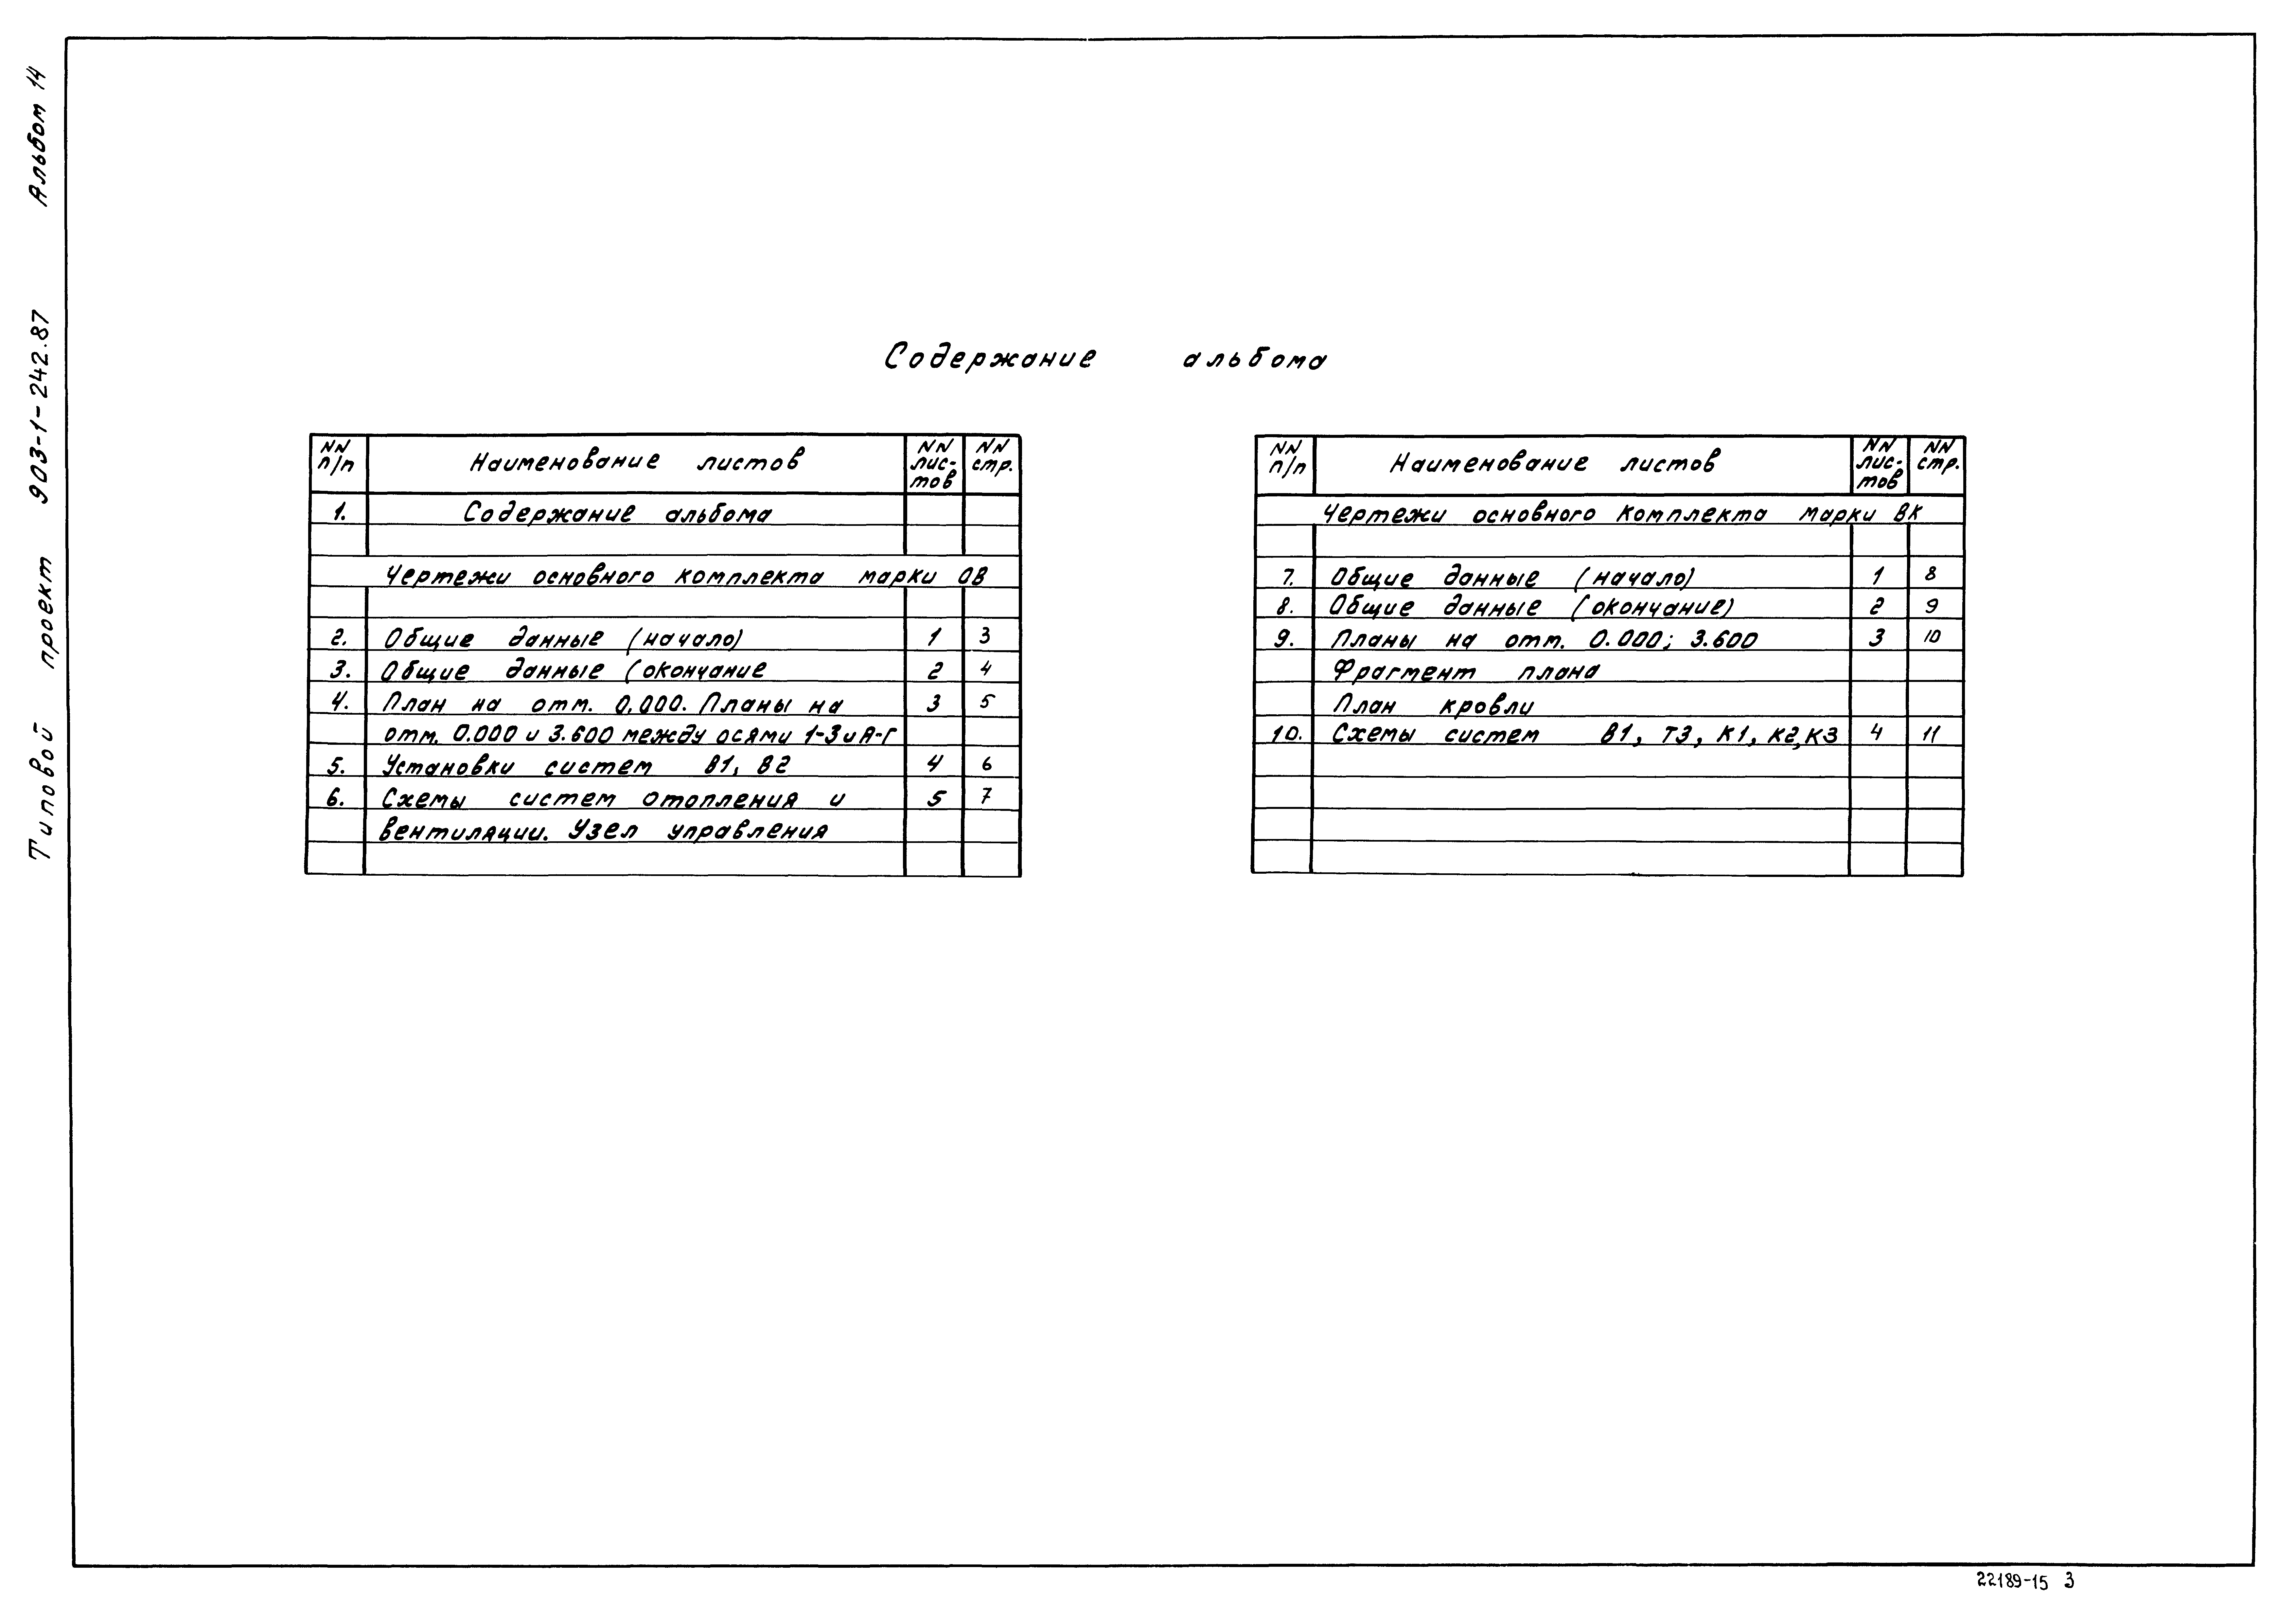 Альбом 14
903-1-242.87
Типовой проект
Содержание альбома
NN п/п Наименование листов NN лис-тов NN стр.
1. Содержание альбома
Чертежи основного комплекта марки ОВ
2. Общие данные (начало) 1 3
3. Общие данные (окончание 2 4
4. План на отм. 0.000. Планы на 3 5
отм. 0.000 и 3.600 между осями 1-3 и А-Г
5. Установки систем В1, В2 4 6
6. Схемы систем отопления и 5 7
вентиляции. Узел управления
NN п/п Наименование листов NN лис-тов NN стр.
Чертежи основного комплекта марки ВК
7. Общие данные (начало) 1 8
8. Общие данные (окончание) 2 9
9. Планы на отм. 0.000; 3.600 3 10
Фрагмент плана
План кровли
10. Схемы систем В1, Т3, К1, К2, К3 4 11
22189-15 3